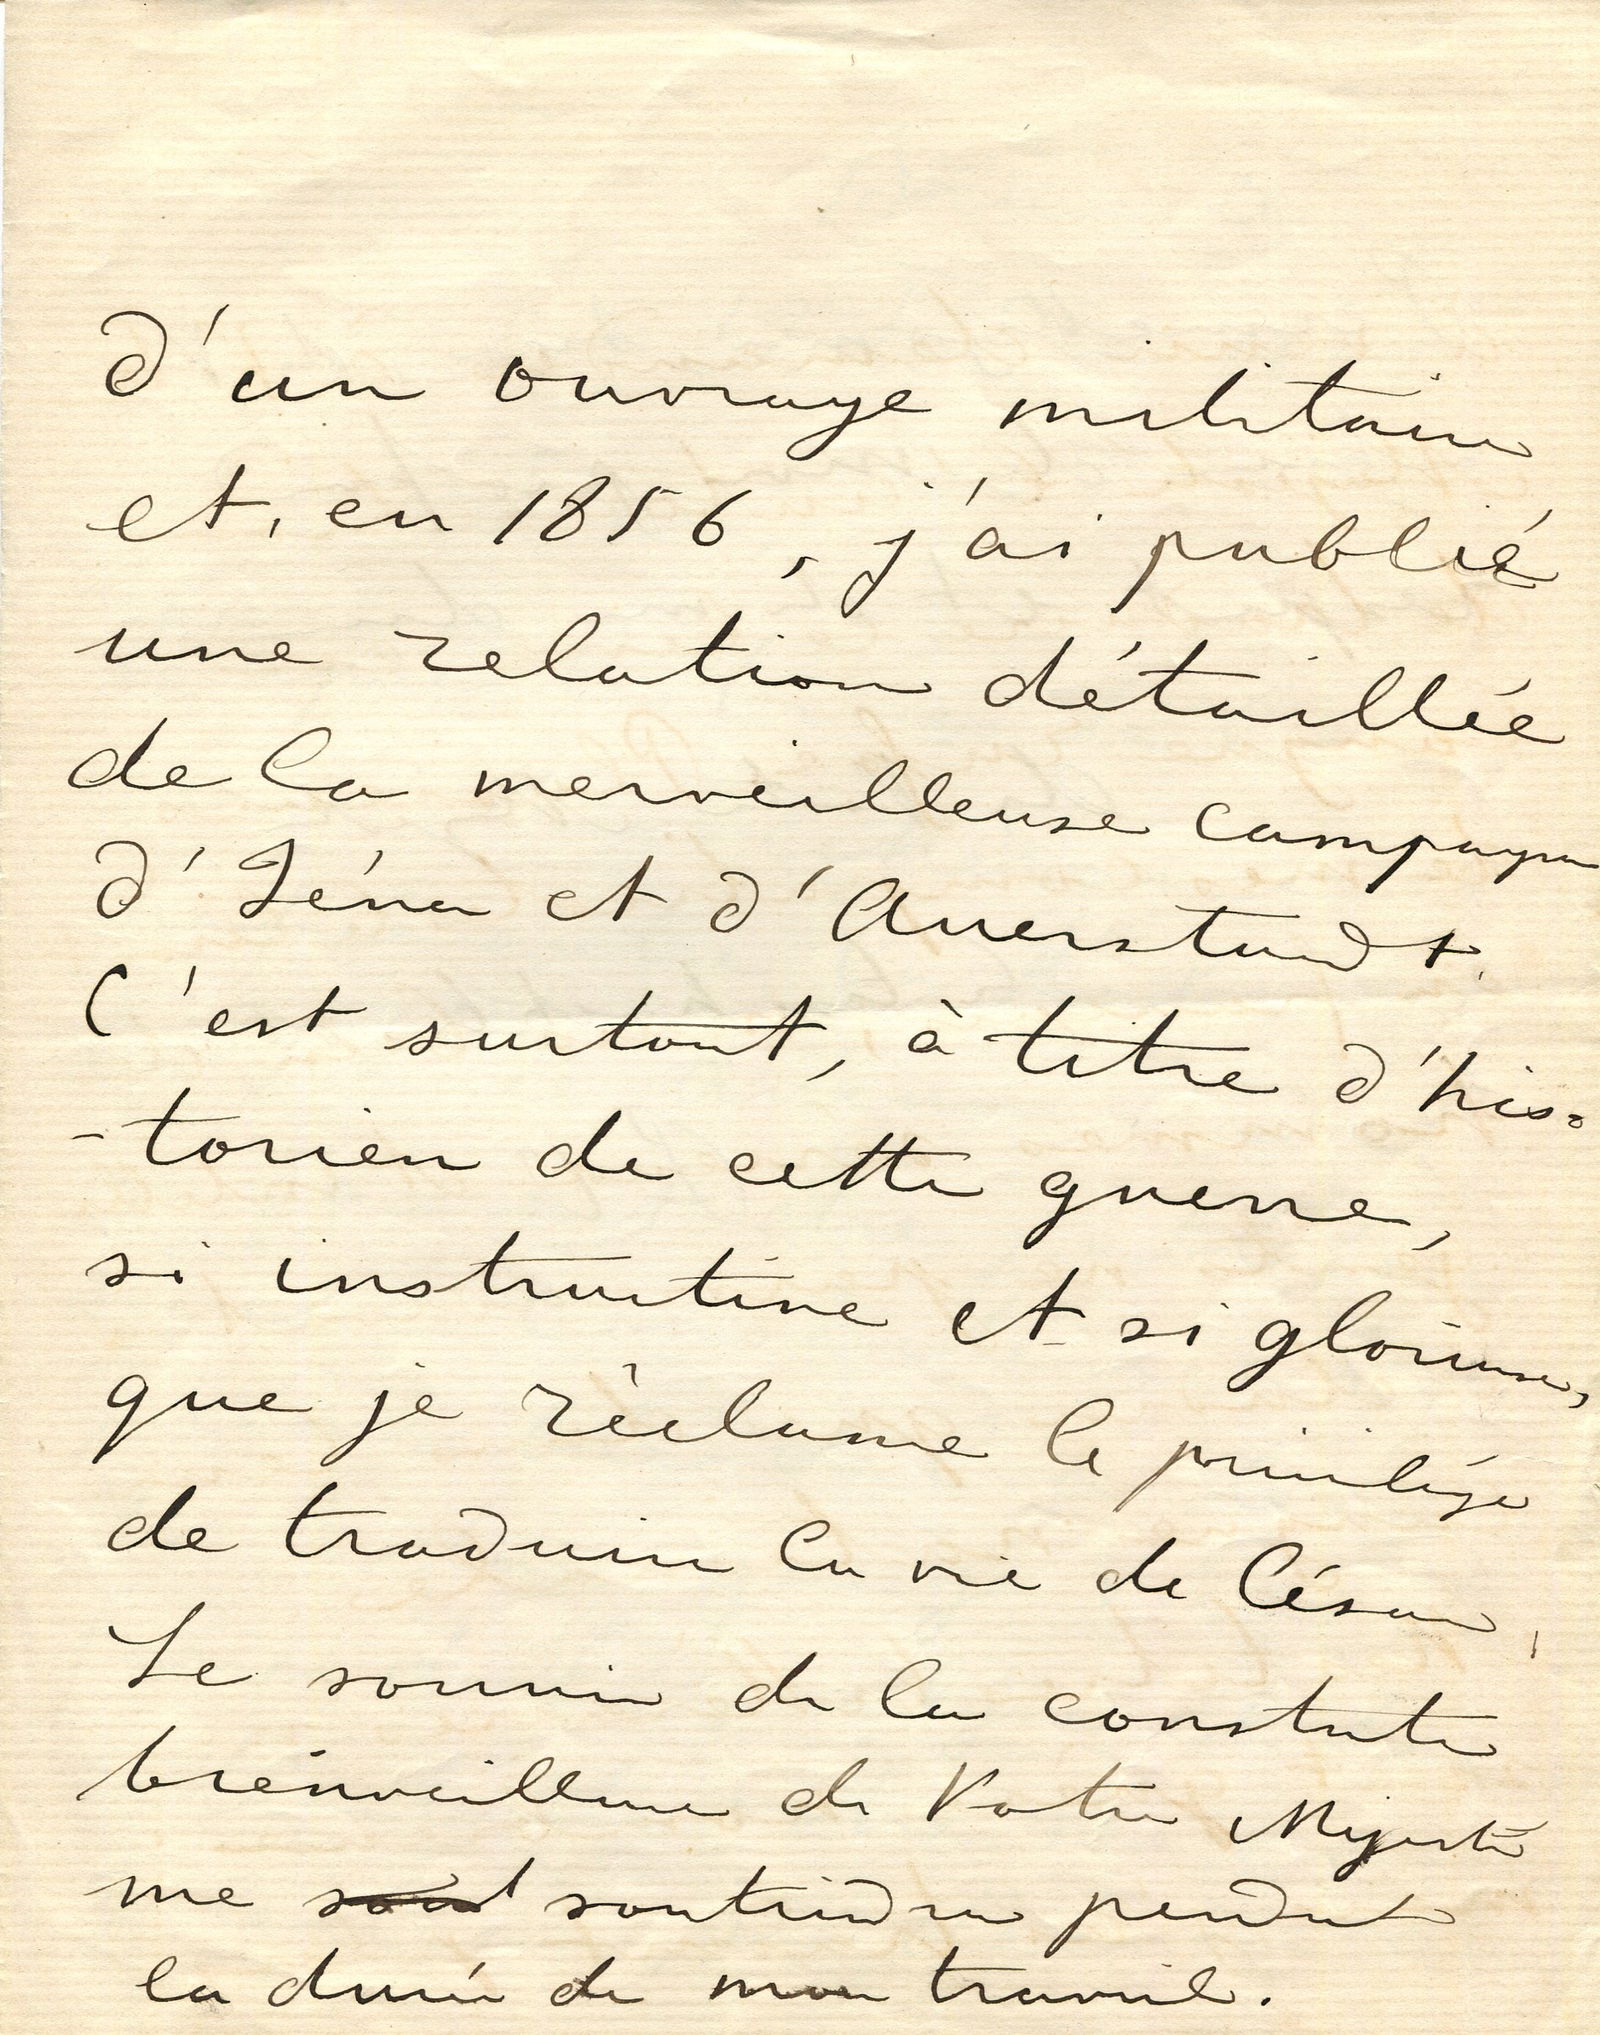 d'un ouvrage militaire
et, en 1856, j'ai publié
une relation détaillée
de la merveilleuse campagne
d'Iéna et d'Auerstaedt.
C'est surtout, à titre d'his-
-torien de cette guerre,
si instructive et si glorieuse,
que je réclame le privilége
de traduire la vie de César.
Le souvenir de la constante
bienveillance de Votre Majesté
me sout soutiendra pendant
la durée de mon travail.